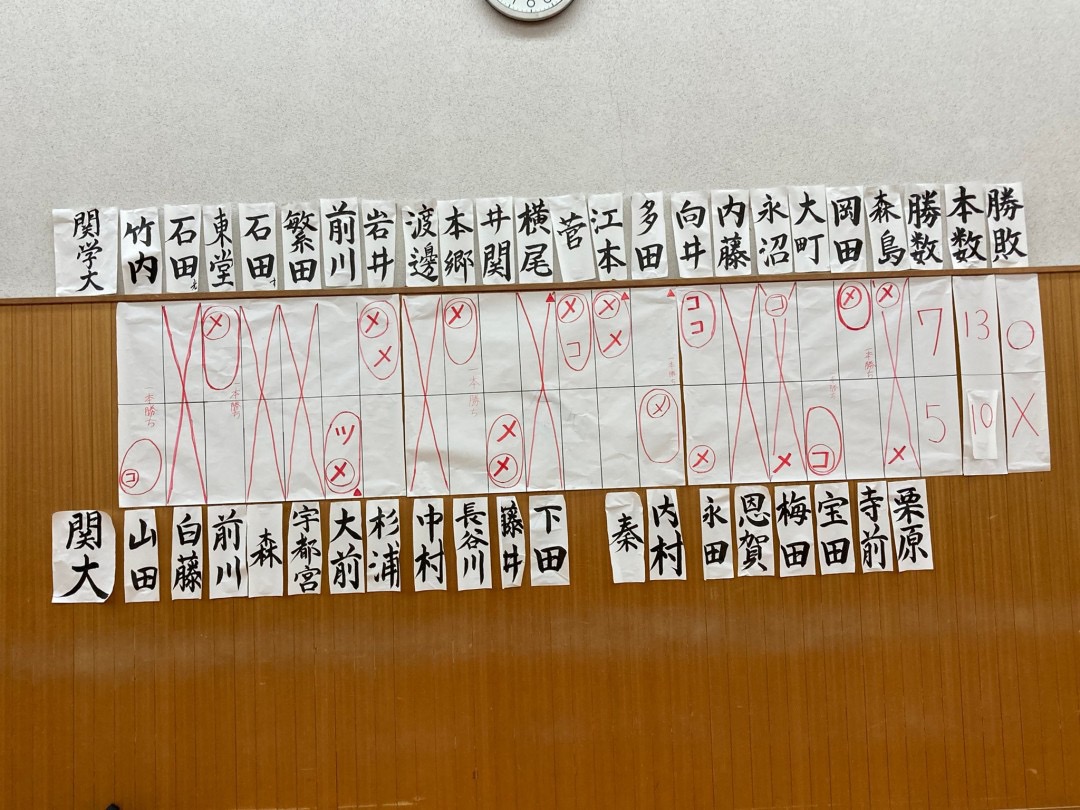 関学大 竹内 石田え 東堂 石田す 繁田 前川 岩井 渡邊 本郷 井関 横尾 菅 江本 多田 向井 内藤 永沼 大町 岡田 森島 勝数 本数 勝敗
メ メ メ メ コ メ メ コ コ コ メ メ 7 13 〇
一本勝ち 一本勝ち 一本勝ち 一本勝ち 一本勝ち 一本勝ち
コ ツ メ メ メ メ メ メ コ メ 5 10 ×
関大 山田 白藤 前川 森 宇都宮 大前 杉浦 中村 長谷川 藤井 下田 秦 内村 永田 恩賀 梅田 宝田 寺前 栗原